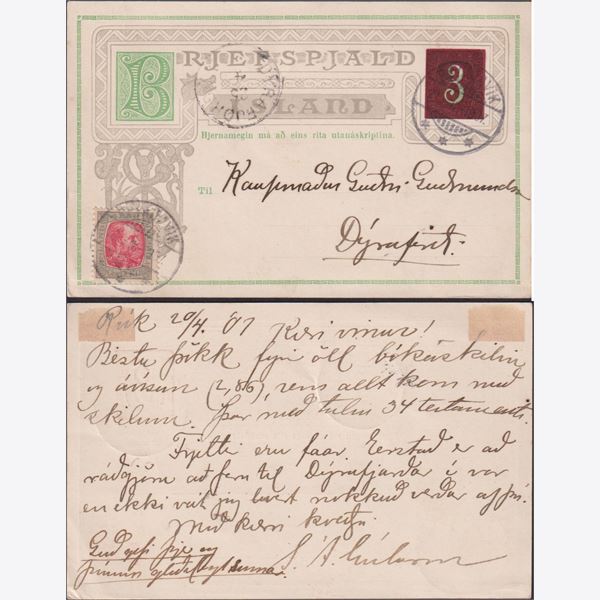 BRJEFSPJALD
ÍSLAND
3
Hjernamegin má að eins rita utanáskriptina.
Til Kaupmaður
Dýrafirði
Rvík 20/4. '07 Kæri vinur!
Bestu þökk fyrir öll bókaskilin
og ávísun (2,66), sem allt kom með
skilum. Þar með talin 34 testamenti.
Frjettir eru fáar. er að
ráðgjöra að fara til Dýrafjarðar í vor
en ekki veit jeg hvort nokkuð verður af því.
Með kæri kveðju.
Guð gefi þjer og
þínum